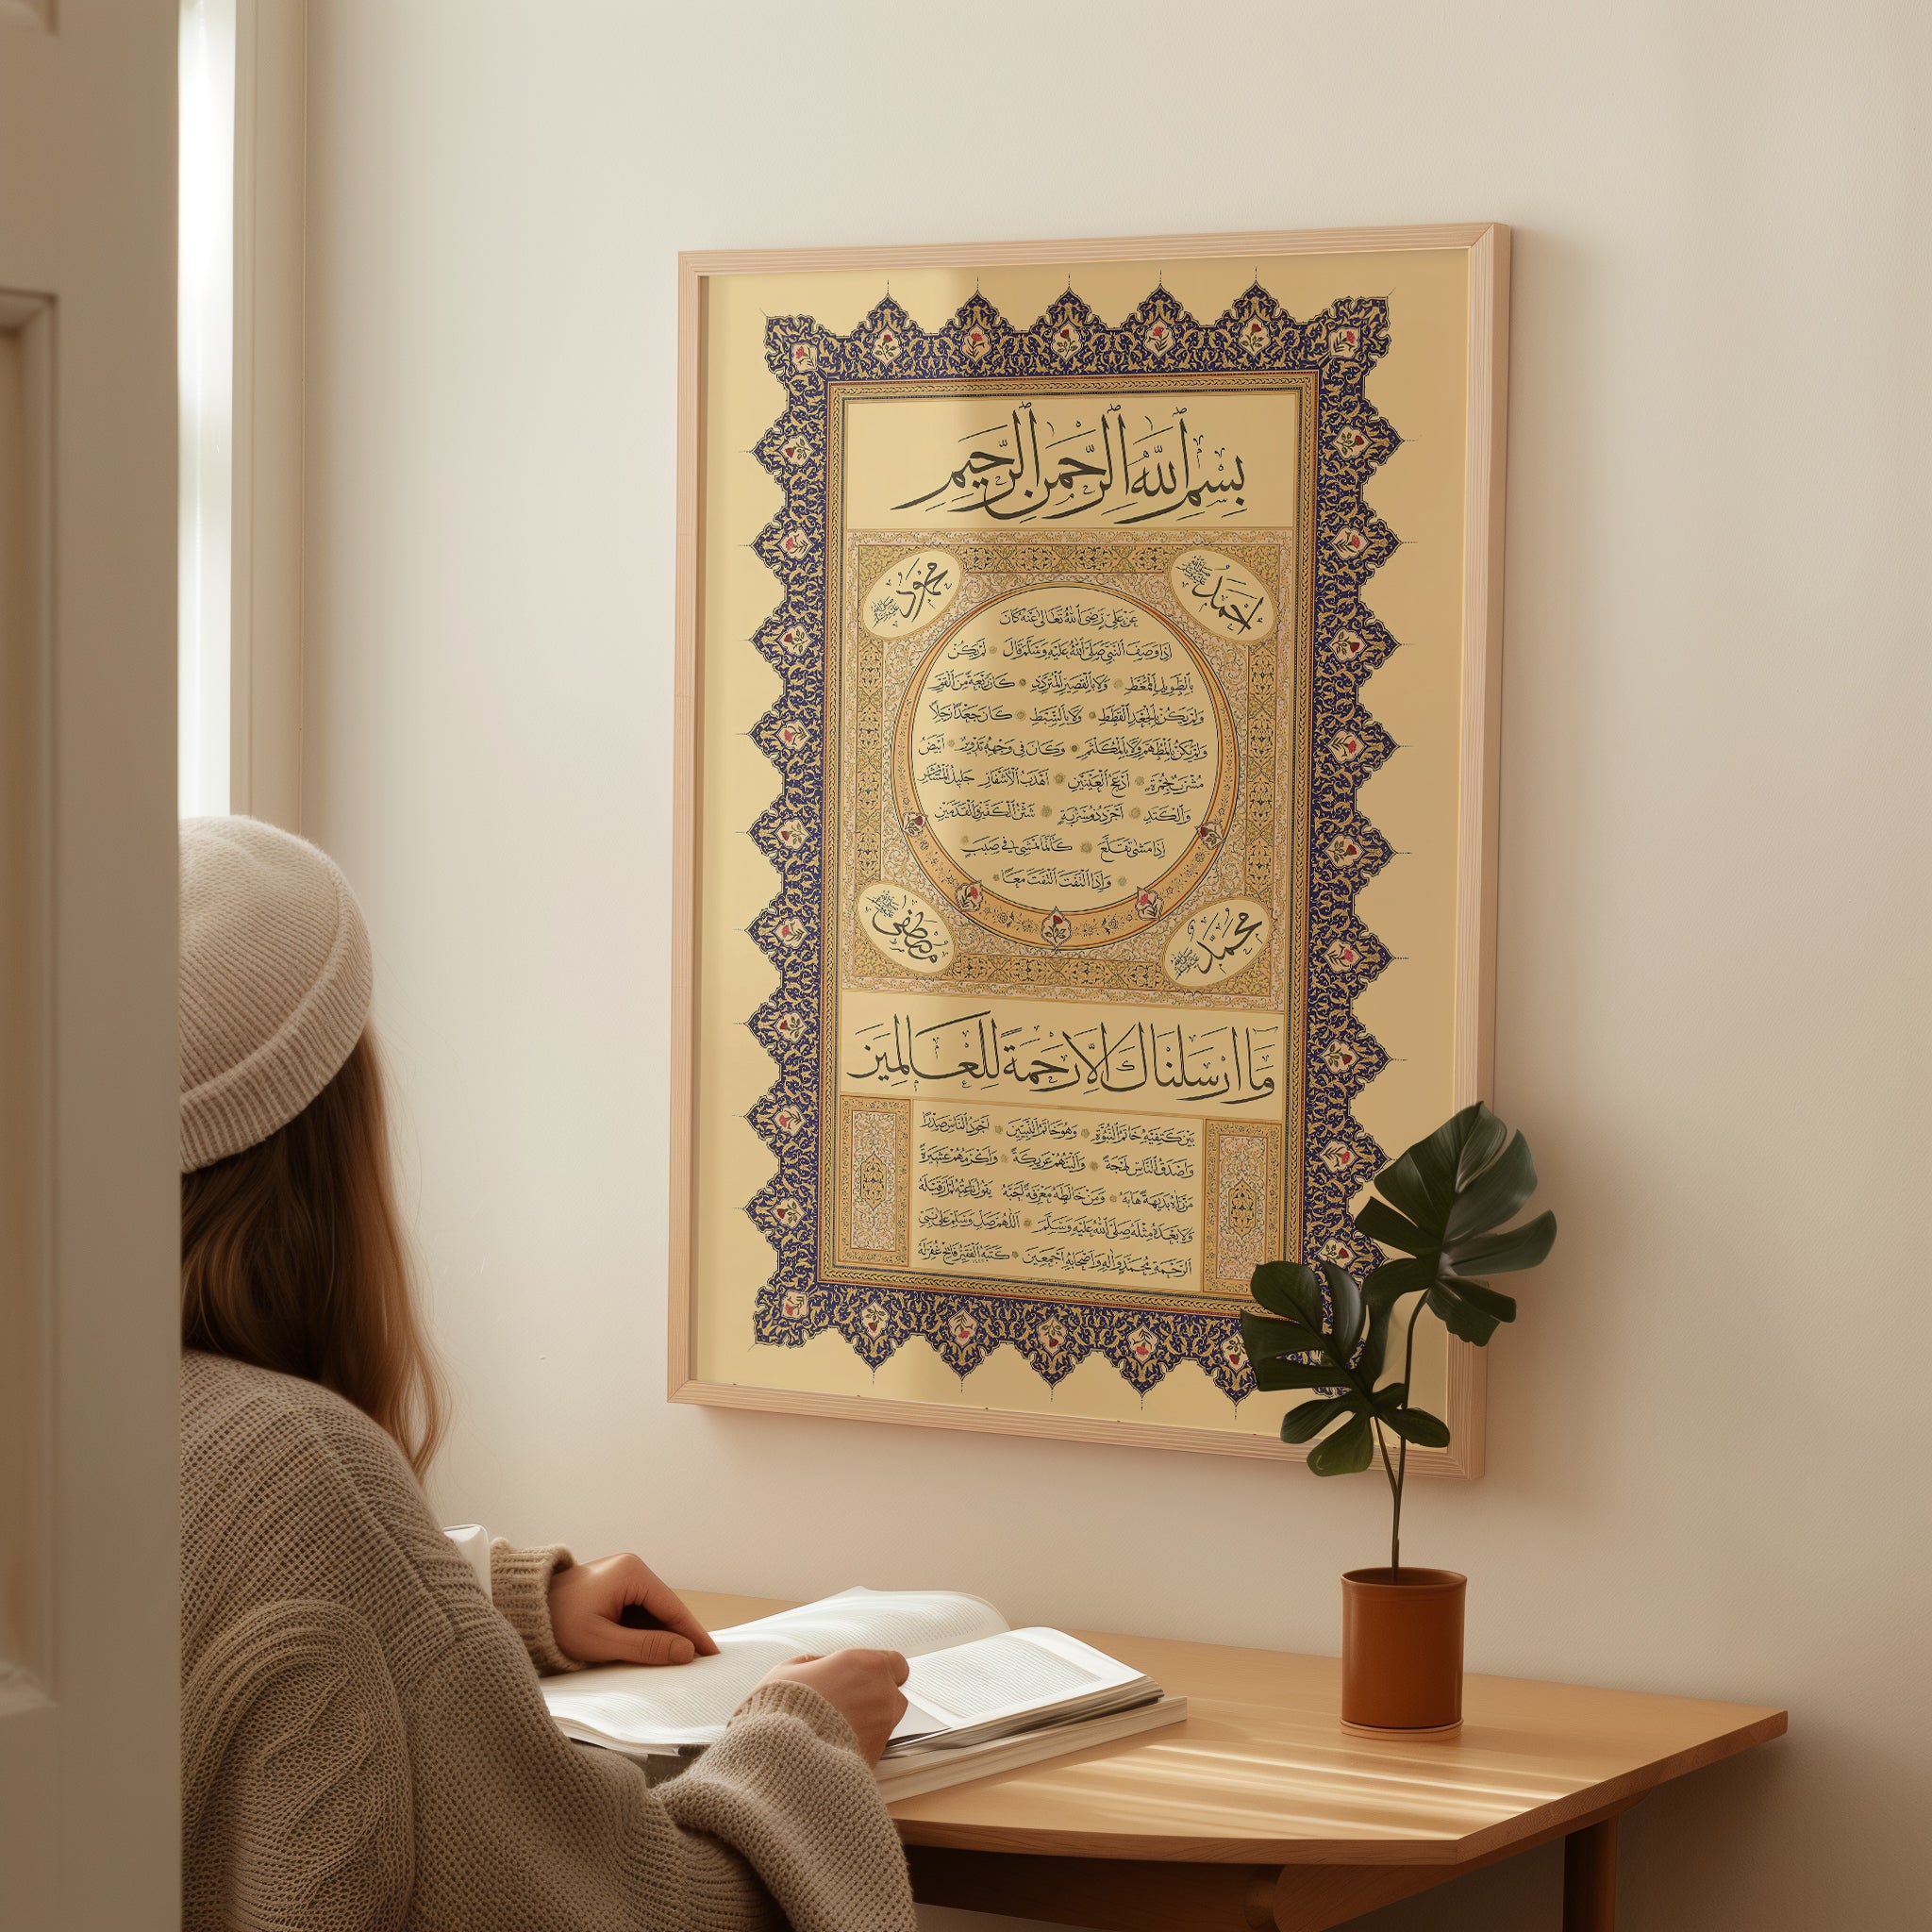 بِسْمِ اللَّهِ الرَّحْمَنِ الرَّحِيمِ
احمد
محمود
عن علي رضي الله تعالى عنه كان
إذا وصف النبي صلى الله عليه وسلم قال لم يكن
بالطويل الممغط ولا بالقصير المتردد كان ربعة من القوم
ولم يكن بالجعد القطط ولا بالسبط كان جعدا رجلا
ولم يكن بالمطهم ولا بالمكلثم وكان في وجهه تدوير أبيض
مشرب بحمرة أدعج العينين أهدب الأشفار جليل المشاش
والكتد أجرد ذو مسربة شثن الكفين والقدمين
إذا مشى تقلع كأنما يمشي في صبب
وإذا التفت التفت معا
محمد
وما ارسلناك الا رحمة للعالمين
بين كتفيه خاتم النبوة وهو خاتم النبيين أجود الناس صدرا
وأصدق الناس لهجة وألينهم عريكة وأكرمهم عشيرة
من رآه بديهة هابه ومن خالطه معرفة أحبه يقول ناعته لم أر قبله
ولا بعده مثله صلى الله عليه وسلم اللهم صل وسلم على نبي
الرحمة محمد وآله وأصحابه أجمعين كتبه الفقير غفر له